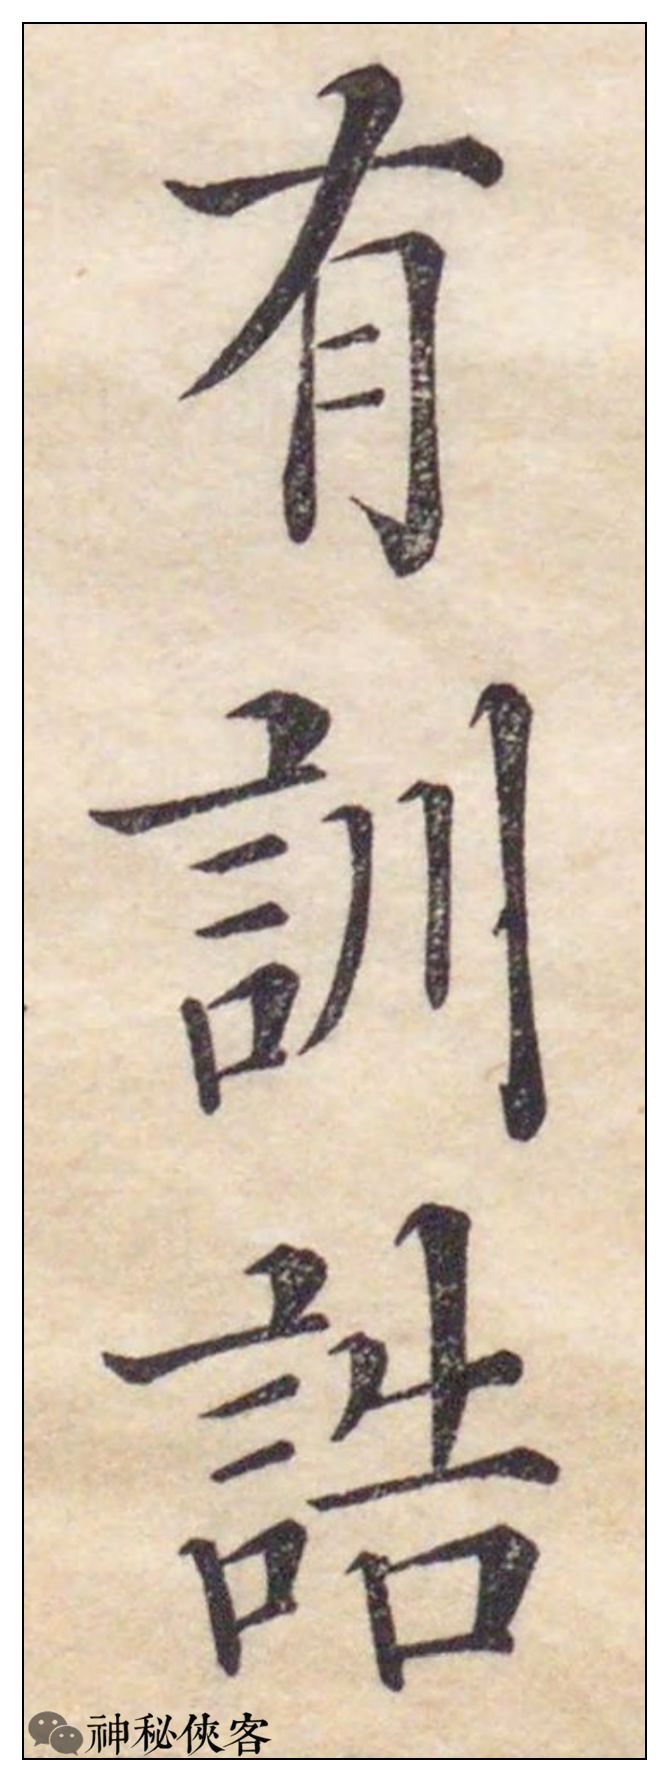 有訓誥
神秘俠客